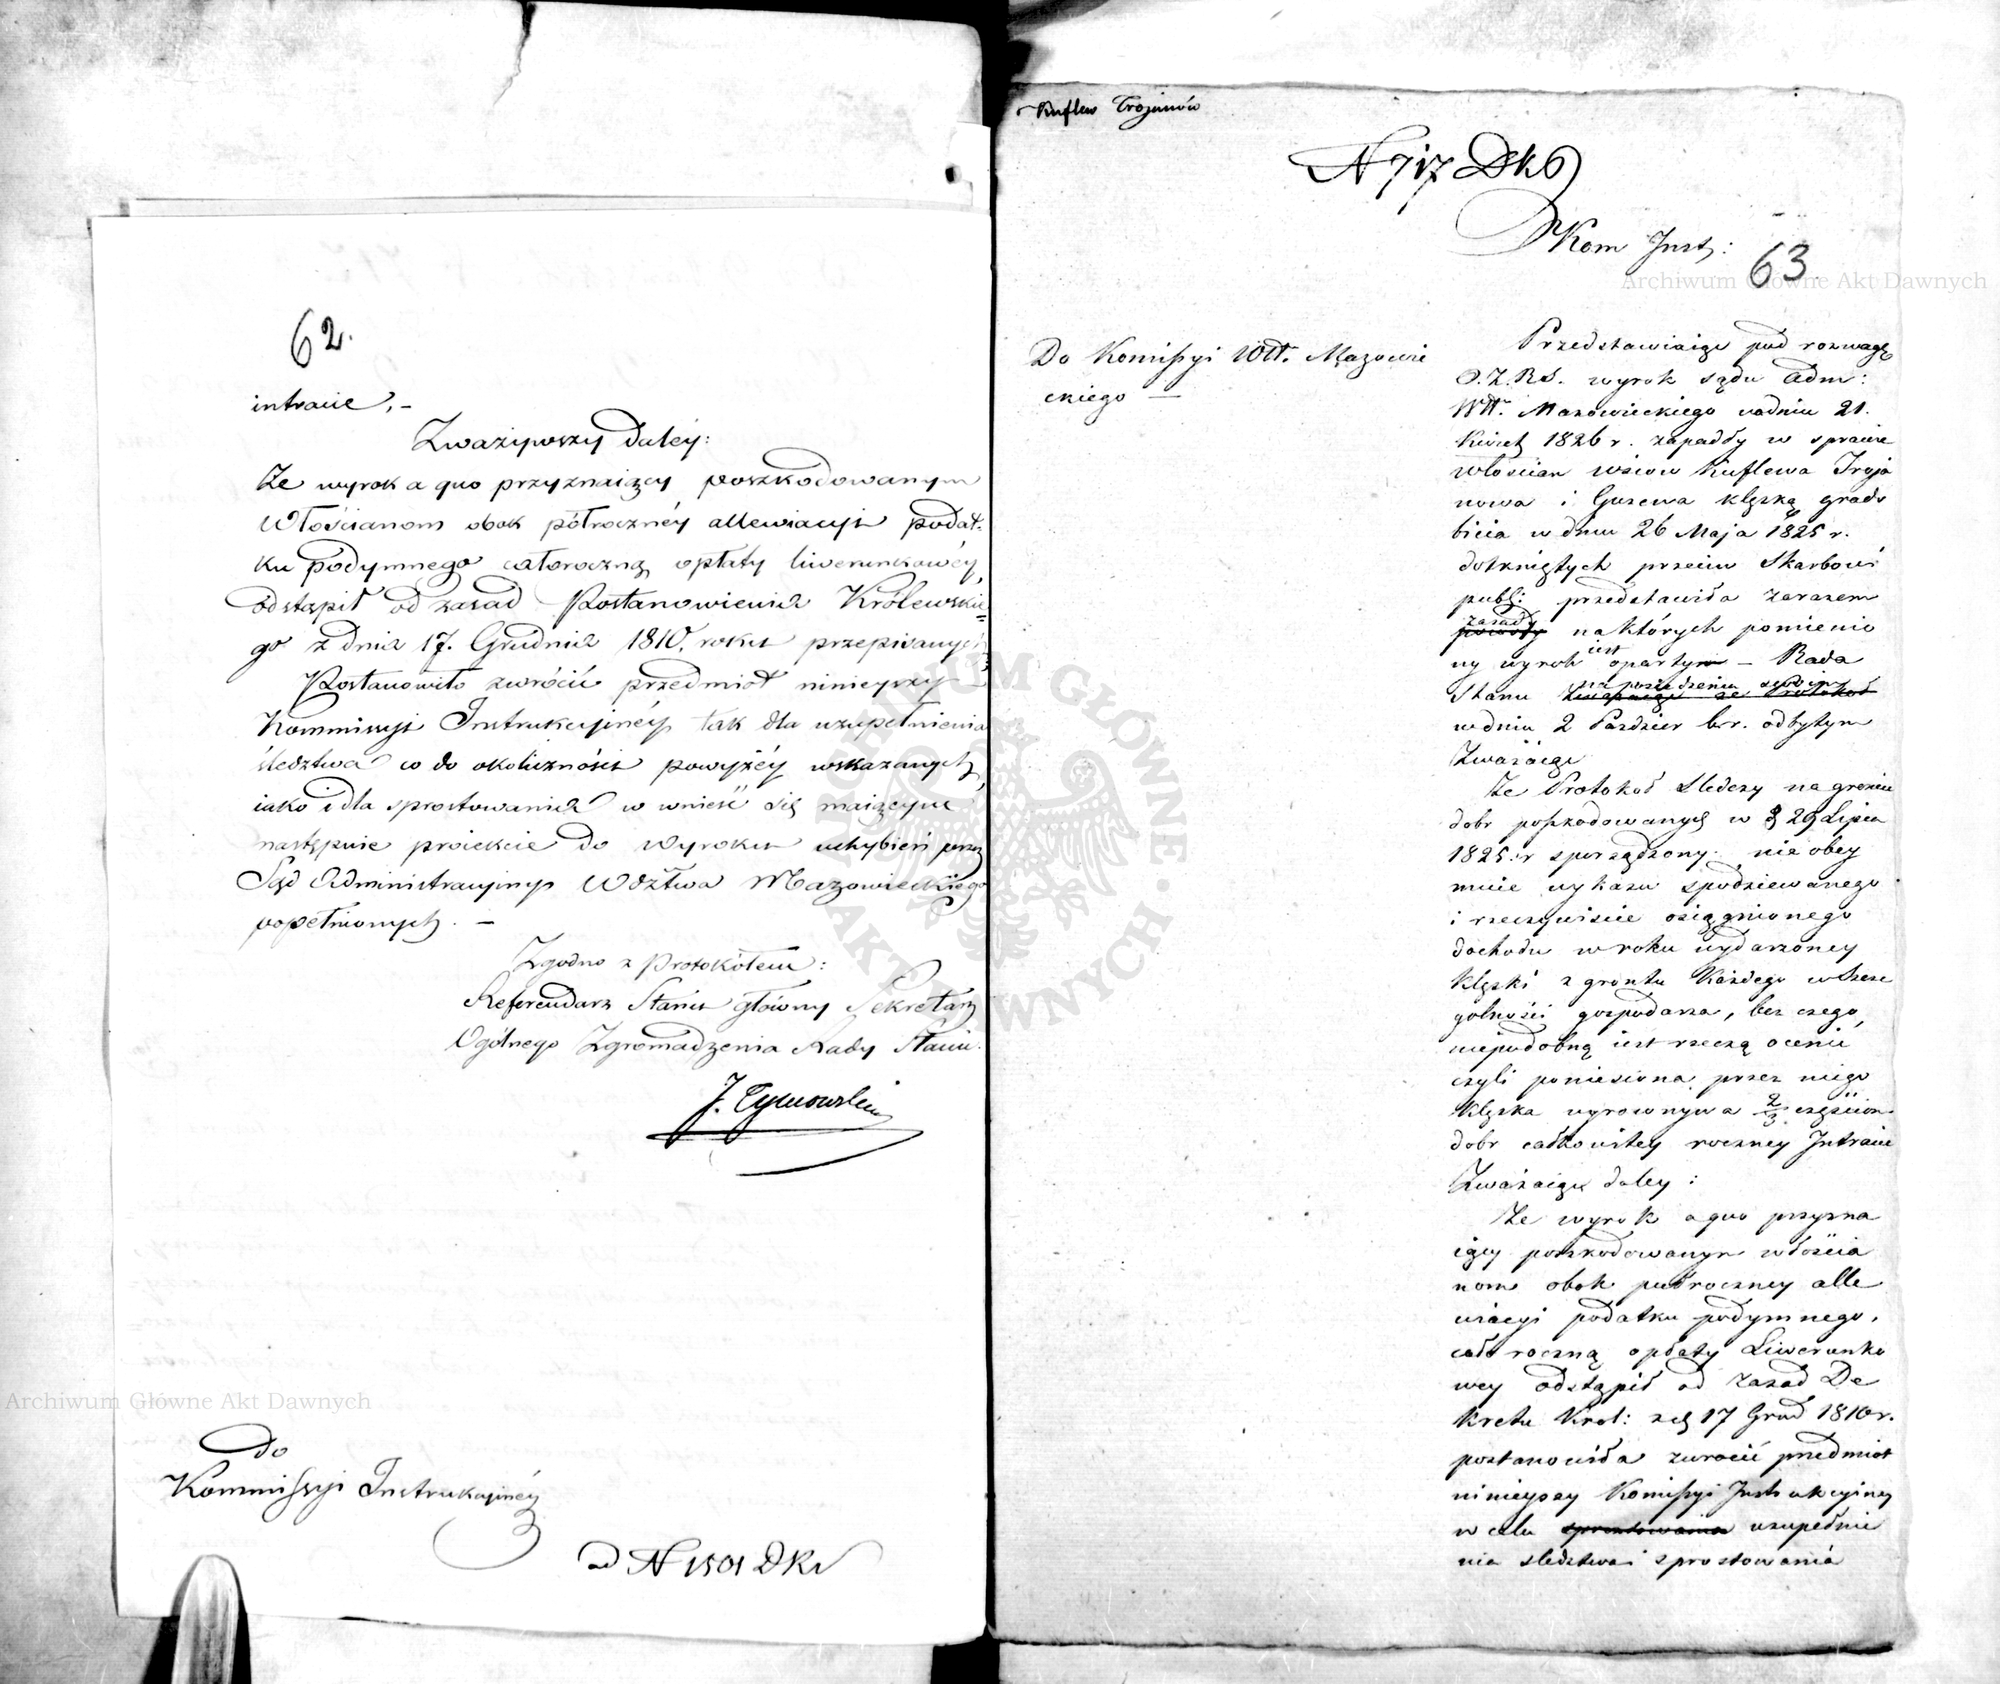 62.
intracie, –
Zważywszy daley:
Że wyrok a quo przyznaiący poszkodowanym
Włościanom obok półrocznéy allewiacyi podat-
ku podymnego całoroczną opłaty liwerunkowéy,
odstąpił od zasad Postanowienia Królewskie-
go z dnia 17. Grudnia 1810. roku przepisanych;
Postanowiło zwrócić przedmiot ninieyszy
Kommissyi Instrukcyinéy tak dla uzupełnienia
śledztwa co do okoliczności powyżéy wskazanych,
iako i dla sprostowania w wnieść się maiącym
następnie proiekcie do wyroku uchybień przez
Sąd Administracyiny Wdztwa Mazowieckiego
popełnionych. –
Zgodno z Protokółem:
Referendarz Stanu główny Sekretarz
Ogólnego Zgromadzenia Rady Stanu.
J. Tymowski
do
Kommissyi Instrukcyinéy
ad N 1501 DKr
Kuflew Trojanów
N 717 Dk6
D Kom Inst:
63
Do Komissyi Wtt. Mazowie
ckiego —
Przedstawiaiąc pod rozwagę
O.Z.R.S. wyrok sądu Adm:
Wtt. Mazowieckiego w dniu 21.
Kwiet 1826 r. zapadły w sprawie
włościan wsiów Kuflewa Troja
nowa i Guzewa klęską grado
bicia w dniu 26 Maja 1825 r.
dotkniętych przeciw Skarbowi
publ: przedstawiła zarazem
zasady
powody na których pomienio
ny wyrok iest opartym – Rada
Stanu na posiedzeniu swoim
w dniu 2 Paździer b.r. odbytym
Zważaiąc
Że Protokoł śledczy na grunc
dobr poszkodowanych w d 29 Lipca
1825 r sporządzony nie obey
muie wykazu spodziewanego
i rzeczywiscie osiągnionego
dochodu w roku wydarzoney
klęski z gruntu każdego w szcze
gulności gospodarza, bez czego,
niepodobną iest rzeczą ocenić
czyli poniesiona przez niego
klęska wyrownywa 2/3 częściom
dobr całkowitey roczney Intracie
Zważaiąc daley:
Że wyrok a quo przyzna
iący poszkodowanym włościa
nom obok pułroczney alle
wiacyi podatku podymnego,
całoroczną opłaty Liwerunko
wey odstąpił od zasad De
kretu Krol: z d 17 Grud 1810 r.
postanowiła zwrocić przedmiot
ninieyszy Komissyi Instrukcyiney
w celu sprostowania uzupełnie
nia śledztwa i sprostowania
Archiwum Główne Akt Dawnych
Archiwum Główne Akt Dawnych
ARCHIWUM GŁÓWNE AKT DAWNYCH